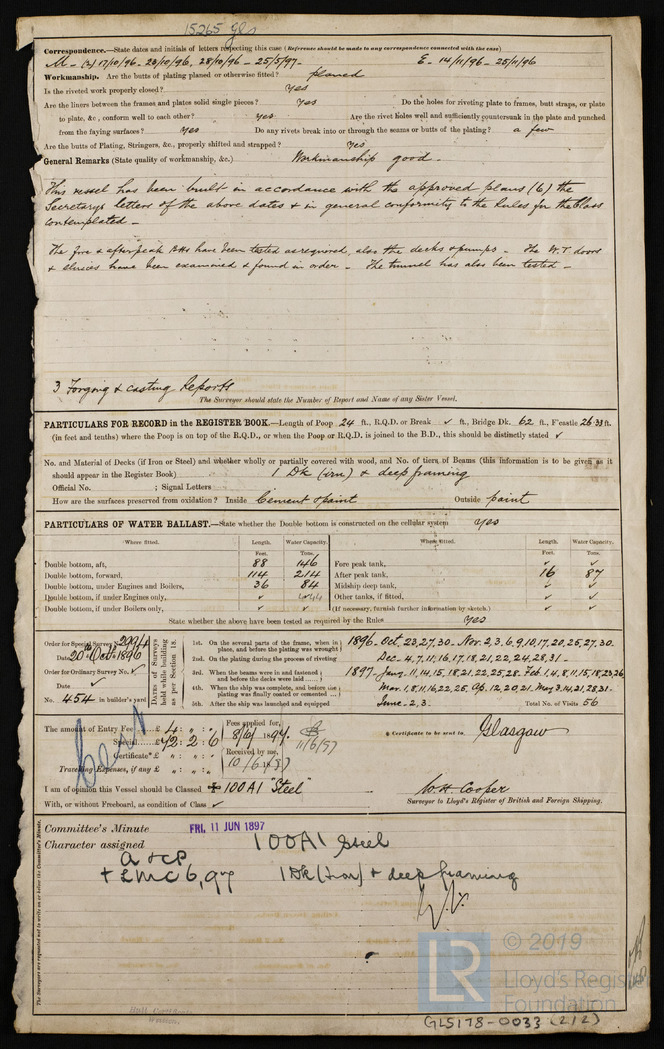 15265 Gls
Correspondence.—State dates and initials of letters respecting this case (Reference should be made to any correspondence connected with the case)
M - (2) 17/10/96 - 23/10/96, 28/10/96 - 25/5/97 - E - 14/11/96 - 25/11/96
Workmanship. Are the butts of plating planed or otherwise fitted? planed
Is the riveted work properly closed? Yes
Are the liners between the frames and plates solid single pieces? Yes Do the holes for riveting plate to frames, butt straps, or plate
to plate, &c., conform well to each other? yes Are the rivet holes well and sufficiently countersunk in the plate and punched
from the faying surfaces? Yes Do any rivets break into or through the seams or butts of the plating? a few
Are the butts of Plating, Stringers, &c., properly shifted and strapped? Yes
General Remarks (State quality of workmanship, &c.) Workmanship good -
This vessel has been built in accordance with the approved plans (6) the
Secretarys letters of the above dates & in general conformity to the Rules for the Class
contemplated -
The fore & afterpeak Bhds have been tested as required, also the decks & pumps - The W.T doors
& sluices have been examined & found in order - The tunnel has also been tested -
3 Forging & casting Reports
The Surveyor should state the Number of Report and Name of any Sister Vessel.
PARTICULARS FOR RECORD in the REGISTER BOOK.—Length of Poop 24 ft., R.Q.D. or Break ✓ ft., Bridge Dk. 62 ft., F'castle 26·33 ft.
(in feet and tenths) where the Poop is on top of the R.Q.D., or when the Poop or R.Q.D. is joined to the B.D., this should be distinctly stated ✓
No. and Material of Decks (if Iron or Steel) and whether wholly or partially covered with wood, and No. of tiers of Beams (this information is to be given as it
should appear in the Register Book) 1 Dk (iron) & deep framing
Official No. ; Signal Letters
How are the surfaces preserved from oxidation? Inside Cement & paint Outside paint
PARTICULARS OF WATER BALLAST.—State whether the Double bottom is constructed on the cellular system yes
Where fitted. Length. Water Capacity. Where fitted. Length. Water Capacity.
Feet. Tons. Feet. Tons.
Double bottom, aft, 88 146 Fore peak tank, ✓ ✓
Double bottom, forward, 114 214 After peak tank, 16 87
Double bottom, under Engines and Boilers, 36 84 Midship deep tank, ✓ ✓
Double bottom, if under Engines only, ✓ Other tanks, if fitted, ✓ ✓
Double bottom, if under Boilers only, ✓ ✓ (If necessary, furnish further information by sketch.)
State whether the above have been tested as required by the Rules Yes
Order for Special Survey No. 2994
Date 20th Oct 1896
Order for Ordinary Survey No. ✓
Date ✓
No. 454 in builder's yard
Dates of Surveys held while building as per Section 18.
1st. On the several parts of the frame, when in place, and before the plating was wrought
2nd. On the plating during the process of riveting
3rd. When the beams were in and fastened, and before the decks were laid
4th. When the ship was complete, and before the plating was finally coated or cemented
5th. After the ship was launched and equipped
1896 - Oct. 23, 27, 30 - Nov. 2, 3, 6, 9, 10, 17, 20, 25, 27, 30.
Dec - 4, 7, 11, 16, 17, 18, 21, 22, 24, 28, 31 -
1897 - Jany. 11, 14, 15, 18, 21, 22, 25, 28. Feb. 1, 4, 8, 11, 15, 18, 23, 26
Mar. 1, 8, 11, 16, 22, 25, Ap. 12, 20, 21. May 3, 14, 21, 28, 31 -
June - 2, 3. Total No. of Visits 56
The amount of Entry Fee £ 4 : " : "
Special £ 42 : 2 : 6
Certificate £ " : " : "
Travelling Expenses, if any £ " : " : "
Fees applied for, 8/6/1897.
Received by me, 10/6/97
11/6/97
Certificate to be sent to Glasgow
I am of opinion this Vessel should be Classed ✠ 100A1 "Steel"
With, or without Freeboard, as condition of Class ✓
W. H. Cooper
Surveyor to Lloyd's Register of British and Foreign Shipping.
Committee's Minute FRI. 11 JUN 1897
Character assigned 100A1 Steel
A & CP
+ LMC 6,97 1 Dk (Iron) & deep framing
The Surveyors are requested not to write on or below the Committee's Minute.
LR © 2019
Lloyd's Register
Foundation
GLS178-0033 (2/2)